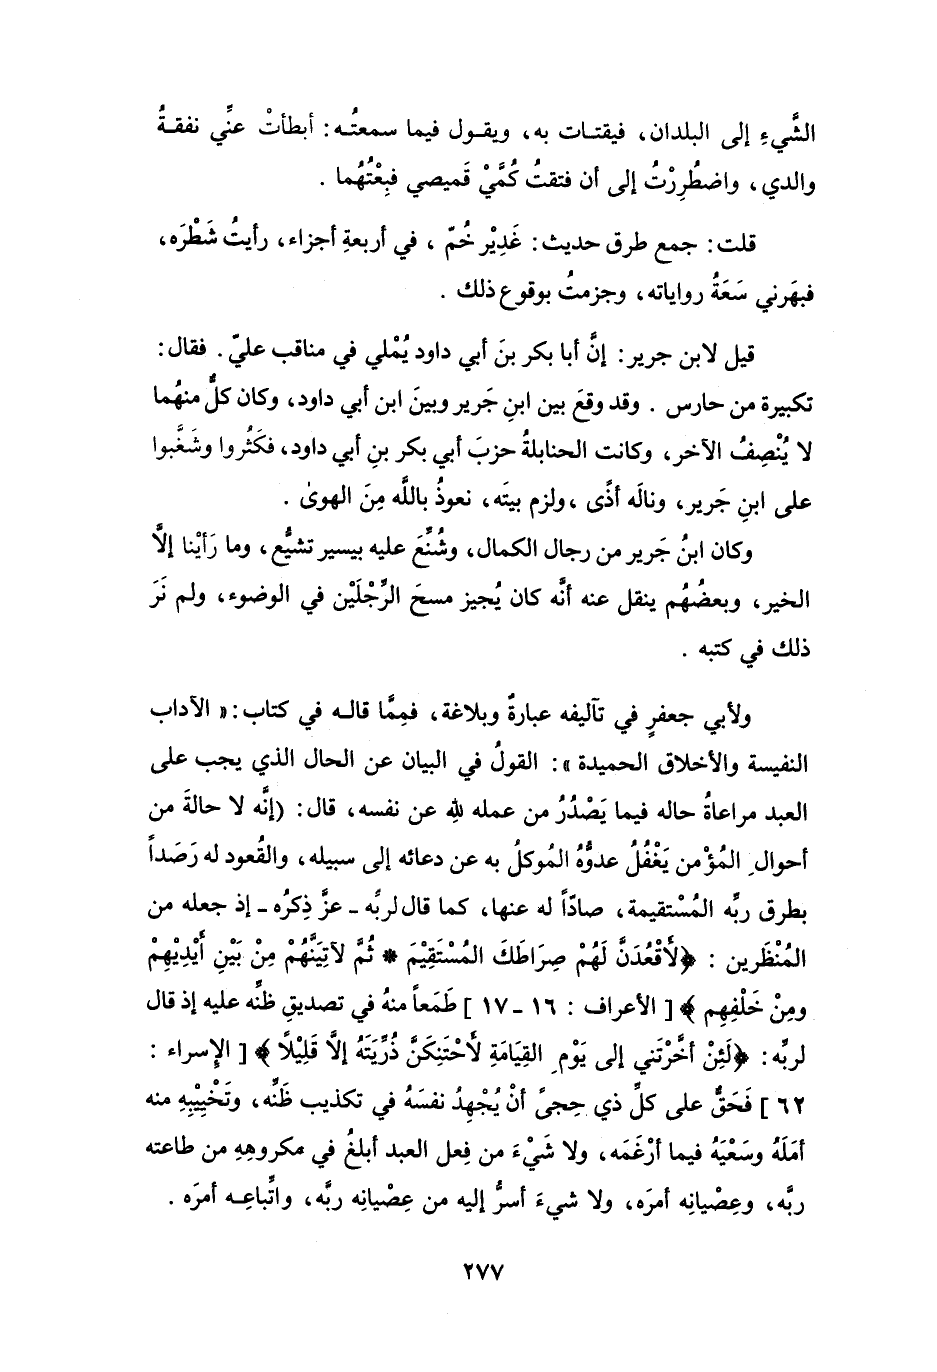 الشَّيءِ إلى البلدان، فيقتـات به، ويقـول فيما سمعتُـه: أبطأتْ عنِّي نفقـةُ
والدي، واضطُرِرْتُ إلى أن فتقتُ كُمَّيْ قَميصي فبِعْتُهُما .
قلت: جمع طرق حديث: غَدِيْر خُمّ ، في أربعةِ أجزاء، رأيتُ شَطْرَه،
فبهَرني سَعَةُ رواياته، وجزمتُ بوقوع ذلك .
قيل لابن جرير: إنَّ أبا بكر بنَ أبي داود يُمْلي في مناقب عليّ. فقال:
تكبيرة من حارس . وقد وقعَ بين ابنِ جَرير وبينَ ابن أبي داود، وكان كلٌّ منهُما
لا يُنْصِفُ الآخر، وكانت الحنابلةُ حزبَ أبي بكر بنِ أبي داود، فكَثُروا وشَغَّبوا
على ابنِ جَرير، ونالَه أذًى ،ولزم بيتَه، نعوذُ باللَّه مِنَ الهوىٰ .
وكان ابنُ جَرير من رجال الكمال، وشُنِّعَ عليه بيسير تشيُّع، وما رَأيْنا إلَّا
الخير، وبعضُهُم ينقل عنه أنَّه كان يُجيز مسحَ الرِّجْلَيْن في الوضوء، ولم نَرَ
ذلك في كتبه .
ولأبي جعفرٍ في تآليفه عبارةٌ وبلاغة، فمِمَّا قالـه في كتاب: « الآداب
النفيسة والأخلاق الحميدة »: القولُ في البيان عن الحال الذي يجب على
العبد مراعاةُ حاله فيما يَصْدُرُ من عمله لله عن نفسه، قال: (إنَّه لا حالةَ من
أحوالِ المُؤْمن يَغْفُلُ عدوُّهُ المُوكلُ به عن دعائه إلى سبيله، والقُعود له رَصَداً
بطرق ربِّه المُسْتقيمة، صادّاً له عنها، كما قال لربِّه ـ عزَّ ذِكرُه ـ إذ جعله من
المُنْظَرين : ﴿لَأَقْعُدَنَّ لَهُمْ صِرَاطَكَ المُسْتَقِيْمَ * ثُمَّ لآتِيَنَّهُمْ مِنْ بَيْنِ أَيْدِيْهِمْ
ومِنْ خَلْفِهِم ﴾ [ الأعراف : ١٦ ـ ١٧ ] طَمَعاً منهُ في تصديقِ ظنِّه عليه إذ قال
لربِّه: ﴿لَئِنْ أخَّرْتَني إلى يَوْمِ القِيَامَةِ لأَحْتَنِكَنَّ ذُرِّيَتَهُ إلَّا قَلِيْلًا ﴾ [ الإِسراء :
٦٢ ] فَحَقٌّ على كلِّ ذي حِجىً أنْ يُجْهِدُ نفسَهُ في تكذيب ظنِّه، وتَخْيِيْبِهِ منه
أمَلَهُ وسَعْيَهُ فيما أرْغَمَه، ولا شَيْءَ من فِعل العبد أبلغُ في مكروهِهِ من طاعته
ربَّه، وعِصْيانِه أمرَه، ولا شيءَ أسرُّ إليه من عِصْيانِه ربَّه، واتِّباعِـه أمرَه .
٢٧٧